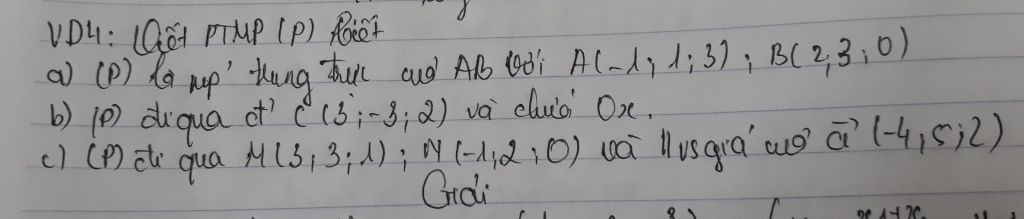 VD4: Viết PTMP (P) biết
a) (P) là mp' trung trực của AB với A(-1; 1; 3); B(2; 3; 0)
b) (P) đi qua đ' C(3; -3; 2) và chứa Ox.
c) (P) đi qua M(3; 3; 1); N(-1; 2; 0) và // vs giá của a (-4; 5; 2)
Giải